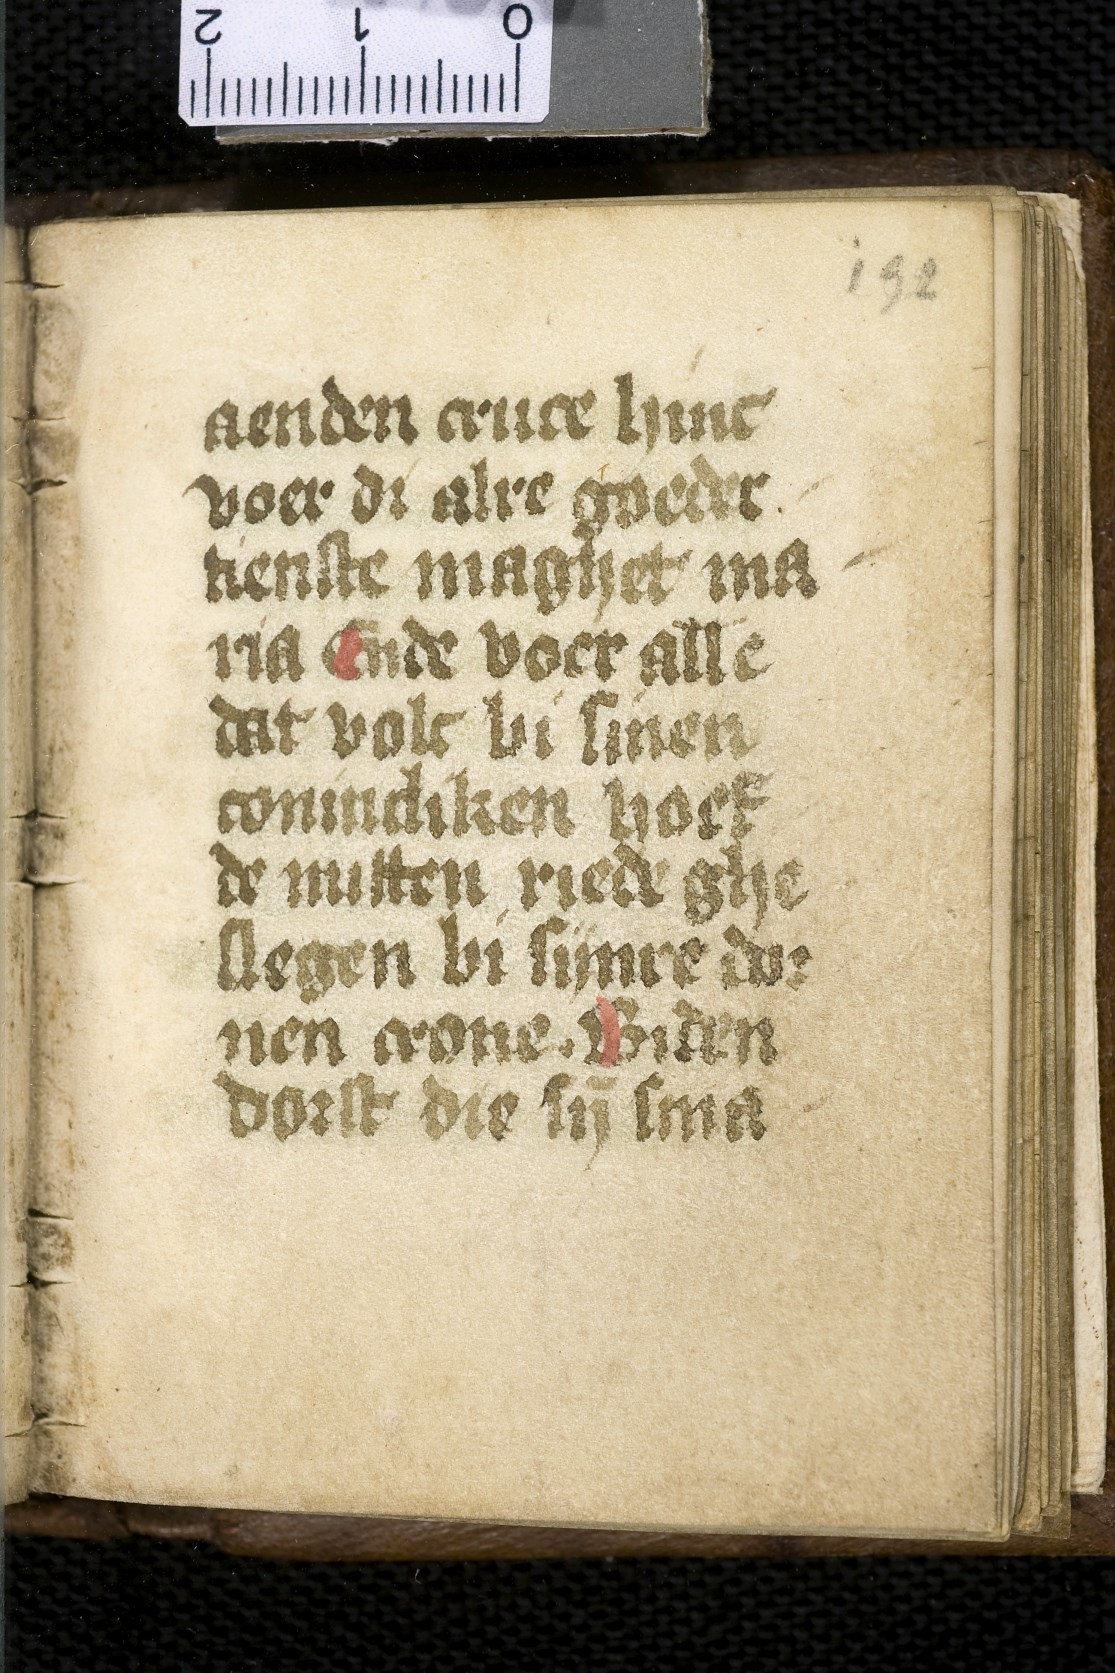 2 1 0
192
aenden cruce hinc
voer di alre goeder
tienste maghet ma
ria Ende voer alle
dat volc bi sinen
conincliken hoef
de mitten riede ghe
slegen bi sijnre dor
nen crone. Biden
dorst die sij̄ sma